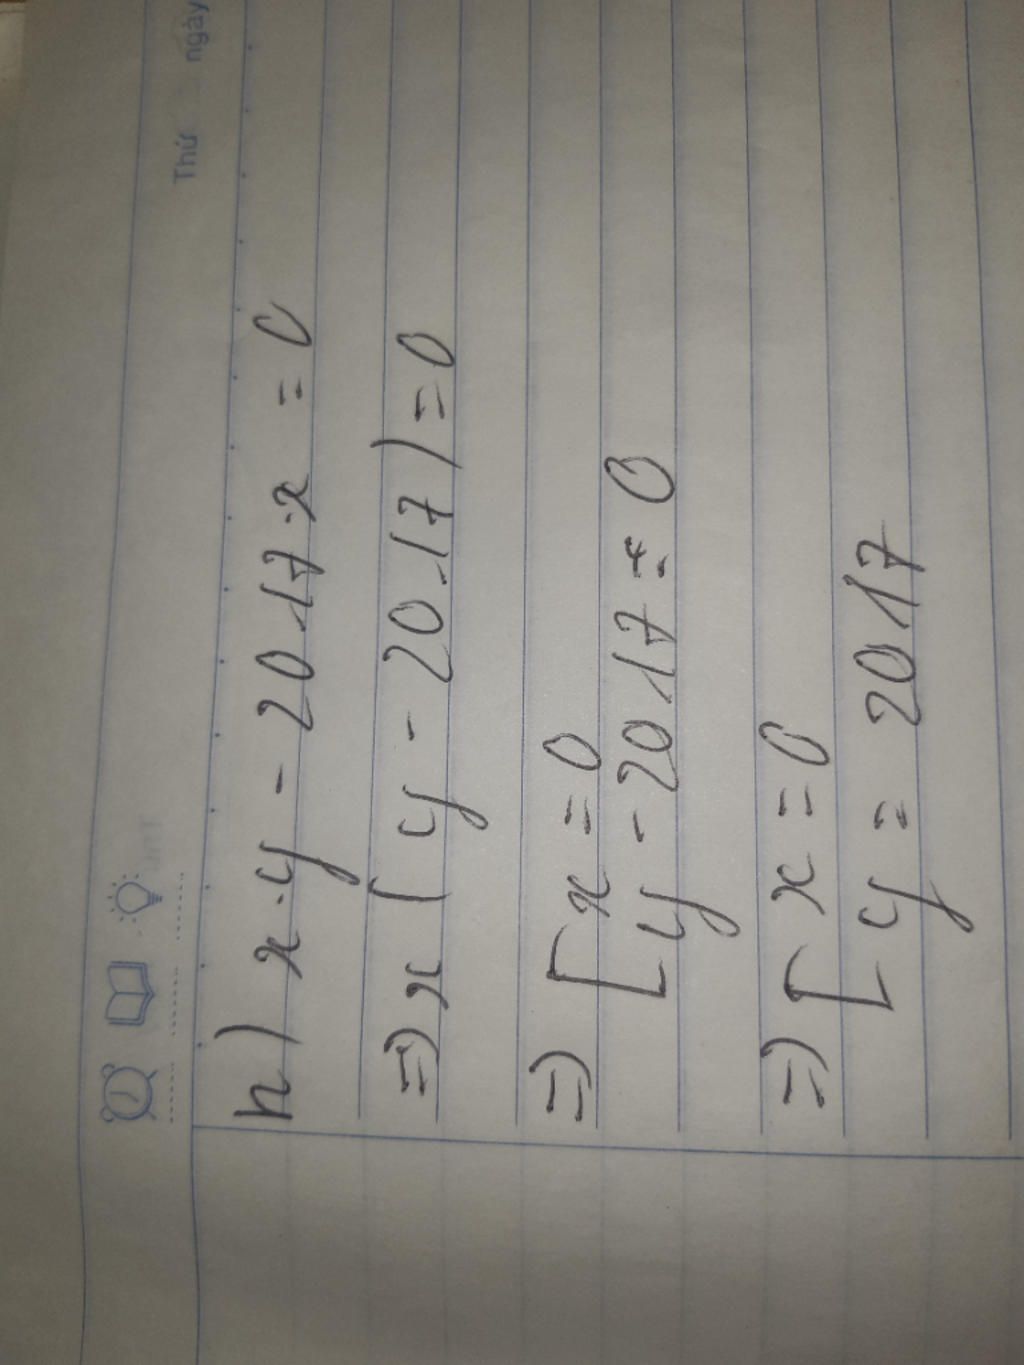 Thứ ngày
h) x.y - 2017.x = 0
=) x ( y - 2017 ) = 0
=) [ x = 0
[ y - 2017 = 0
=) [ x = 0
[ y = 2017